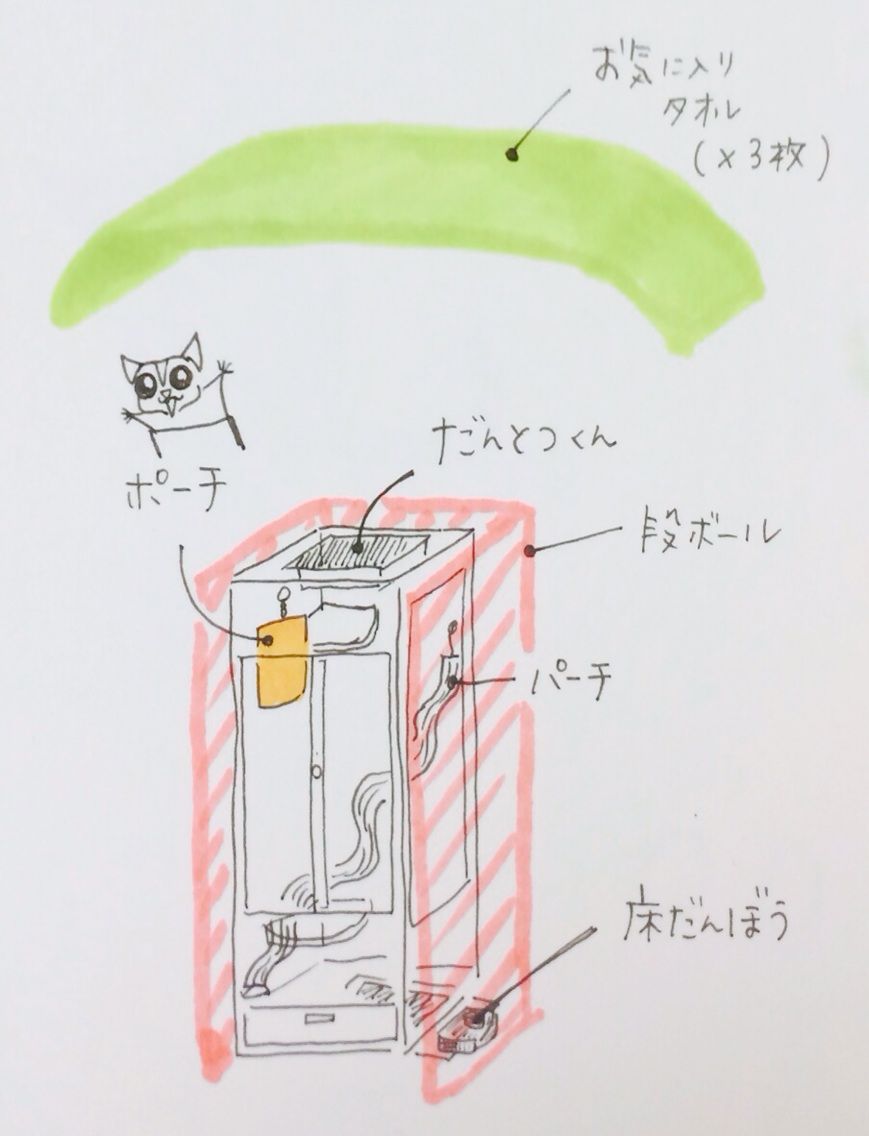 お気に入り
タオル
(×3枚)
だんとつくん
ポーチ
段ボール
パーチ
床だんぼう